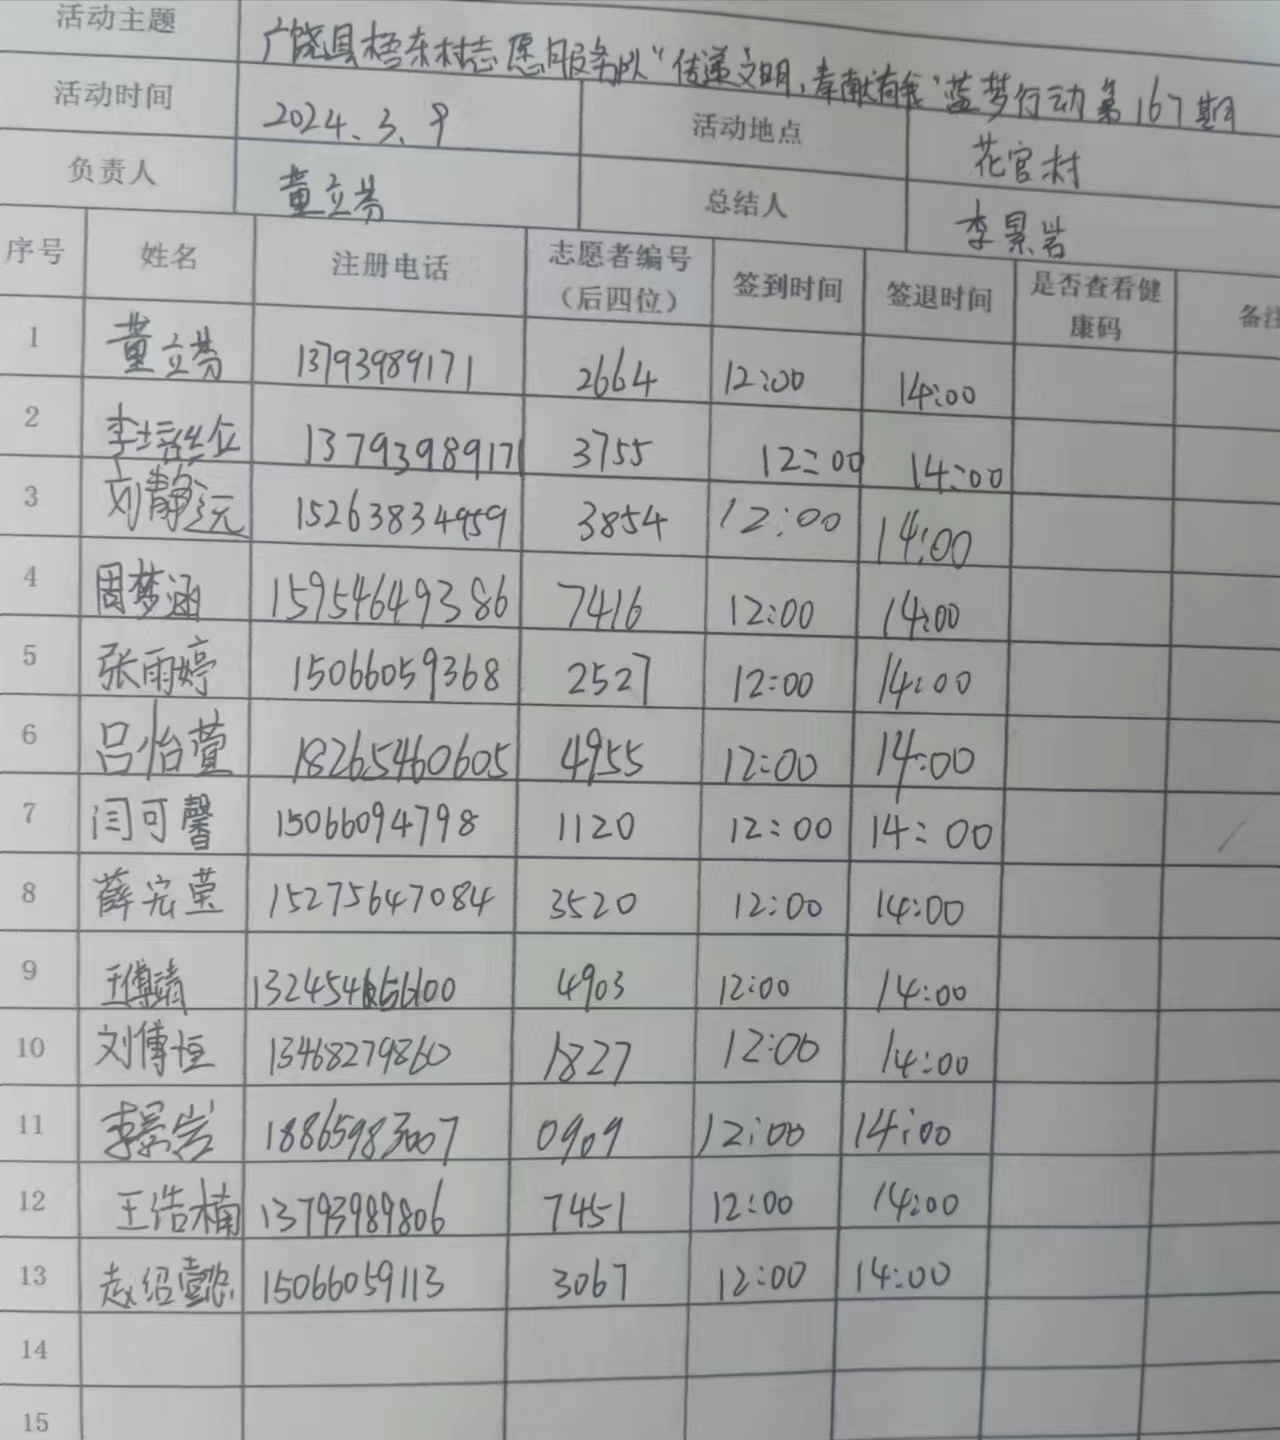 活动主题 广饶县梧东村志愿服务队“传递文明，奉献有我”蓝梦行动第167期
活动时间 2024.3.9 活动地点 花官村
负责人 董立芬 总结人 李景岩
序号 姓名 注册电话 志愿者编号（后四位） 签到时间 签退时间 是否查看健康码 备注
1 董立芬 13793989171 2664 12:00 14:00
2 李 13793989171 3755 12:00 14:00
3 刘静远 15263834959 3854 12:00 14:00
4 周梦涵 15954649386 7416 12:00 14:00
5 张雨婷 15066059368 2527 12:00 14:00
6 吕怡萱 18265460605 4955 12:00 14:00
7 闫可馨 15066094798 1120 12:00 14:00
8 薛宏莹 15275647084 3520 12:00 14:00
9 王傅靖 4903 12:00 14:00
10 刘傅恒 13468279860 1827 12:00 14:00
11 李景岩 18865983007 0909 12:00 14:00
12 王浩楠 13793989806 7451 12:00 14:00
13 赵绍懿 15066059113 3067 12:00 14:00
14
15